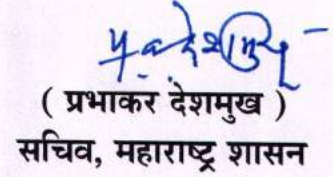 ( प्रभाकर देशमुख )
सचिव, महाराष्ट्र शासन